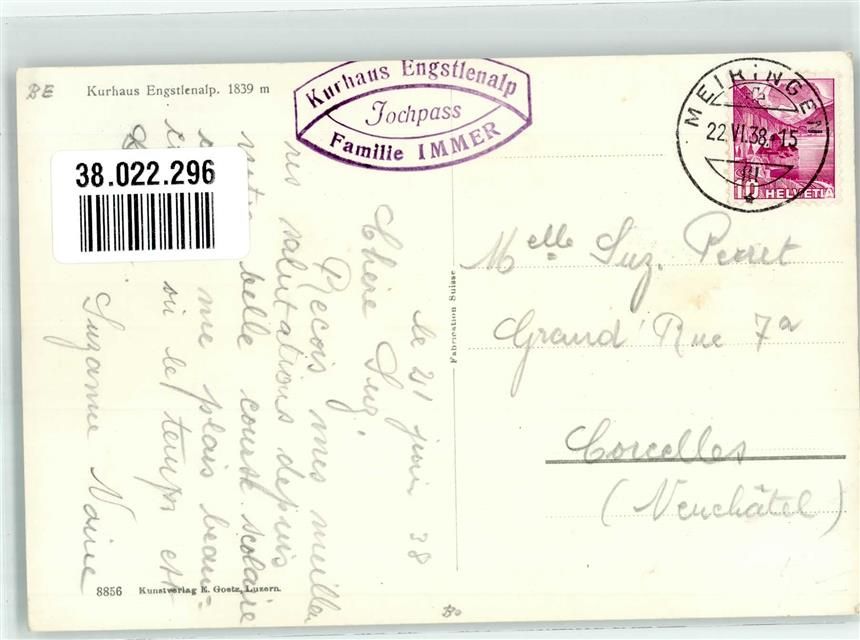 BE
Kurhaus Engstlenalp. 1839 m
Kurhaus Engstlenalp
Jochpass
Familie IMMER
MEIRINGEN
22.VI.38.-15
10 HELVETIA
38.022.296
le 21 juin 38
Chère Suz,
Reçois mes meilleu
res salutations depuis
notre belle course scolaire
me plais beau-
où le temps est
Suzanne Naine
Fabrication Suisse
Melle Suz. Perret
Grand'Rue 7a
Corcelles
(Neuchâtel)
8856 Kunstverlag E. Goetz, Luzern.